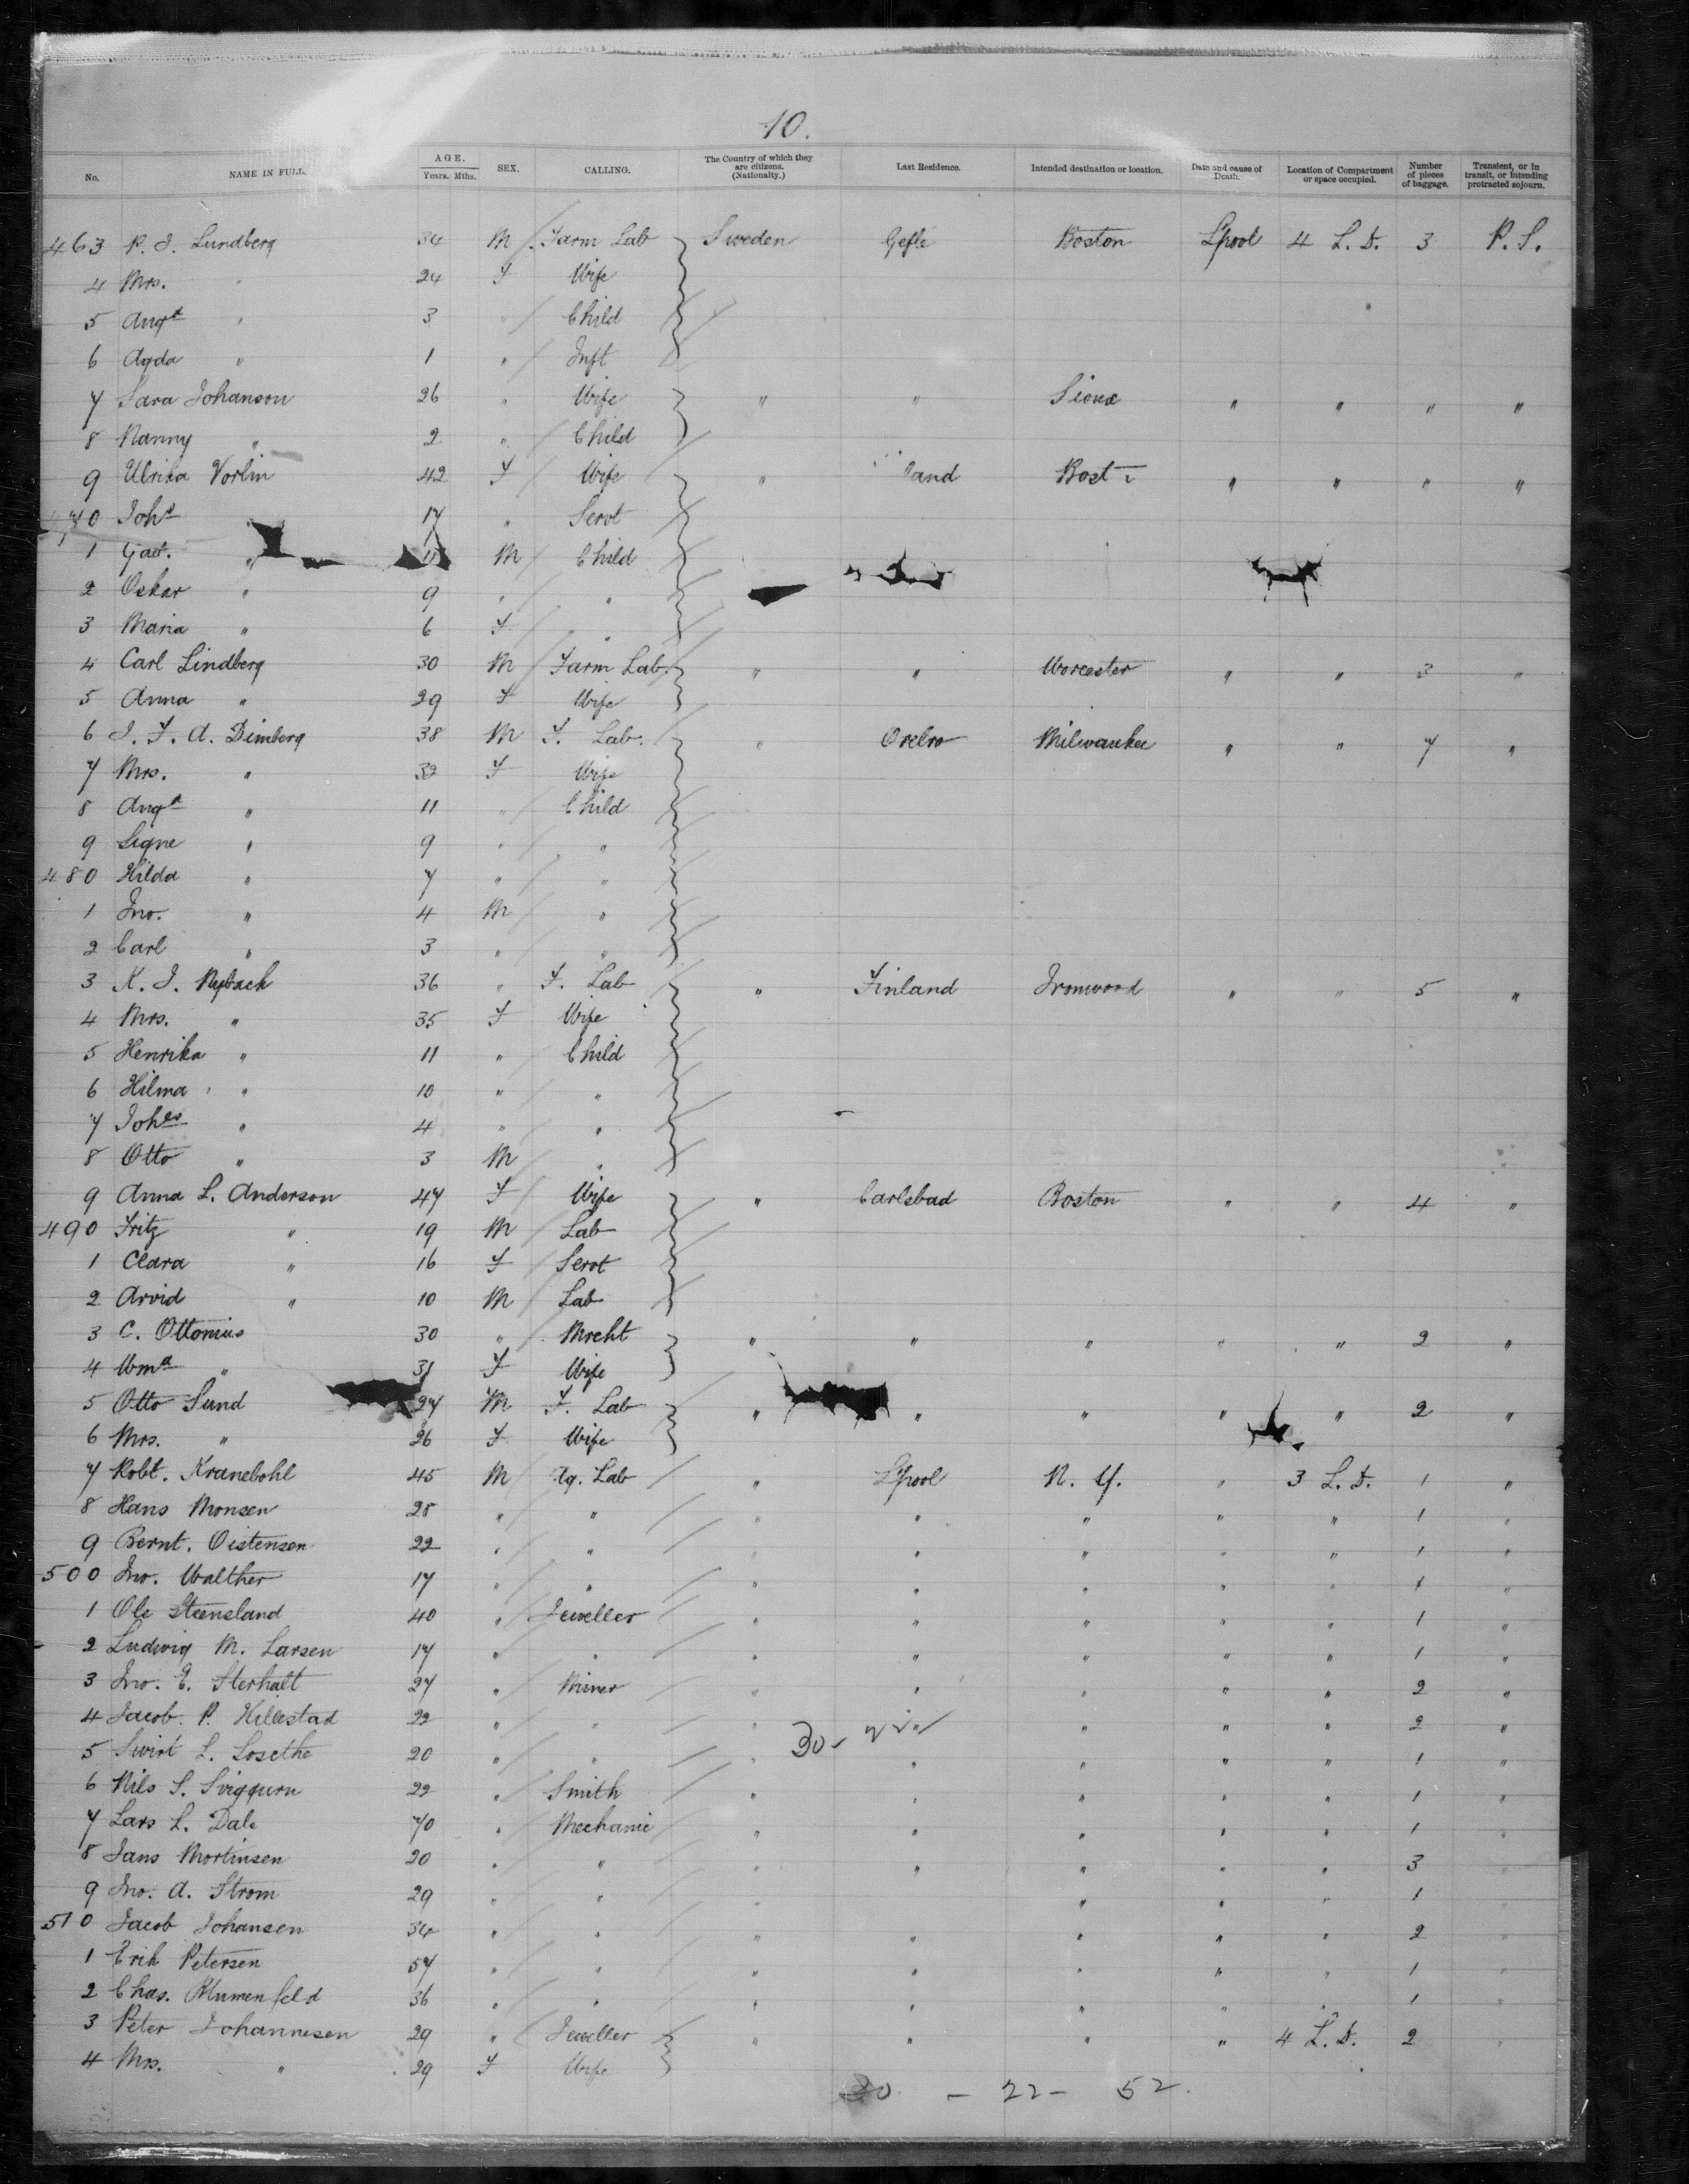 10.
No. NAME IN FULL. AGE. Years. Mths. SEX. CALLING. The Country of which they are citizens. (Nationalty.) Last Residence. Intended destination or location. Date and cause of Death. Location of Compartment or space occupied. Number of pieces of baggage. Transient, or in transit, or intending protracted sojourn.
463 P. J. Lundberg 34 M Farm Lab Sweden Gefle Boston L'pool 4 L. D. 3 P. S.
4 Mrs. " 24 F Wife
5 Augᵃ " 3 " Child
6 Agda " 1 " Inft
7 Sara Johanson 26 " Wife " " Sioux " " " "
8 Nanny " 2 " Child
9 Ulrika Vorlin 42 F Wife " land Bost " " " "
70 Johᵃ " 17 " Servt
1 Gust. " M Child
2 Oskar " 9 " "
3 Maria " 6 F "
4 Carl Lindberg 30 M Farm Lab. " " Worcester " " 3 "
5 Anna " 29 F Wife
6 J. F. A. Dimberg 38 M F. Lab. " Orebro Milwaukee " " 7 "
7 Mrs. " 32 F Wife
8 Augᵃ " 11 " Child
9 Signe " 9 " "
480 Hilda " 7 " "
1 Jno. " 4 M "
2 Carl " 3 " "
3 K. J. 36 " F. Lab " Finland Ironwood " " 5 "
4 Mrs. " 35 F Wife
5 Henrika " 11 " Child
6 Hilma " 10 " "
7 Johᵉˢ " 4 " "
8 Otto " 3 M "
9 Anna L. Anderson 47 F Wife " Carlsbad Boston " " 4 "
490 Fritz " 19 M Lab
1 Clara " 16 F Servt
2 Arvid " 10 M Lab
3 C. Ottonius 30 " Mrcht " " " " " 2 "
4 Wmᵃ " 31 F Wife
5 Otto Sund 27 M F. Lab " " " " " 2 "
6 Mrs. " 26 F Wife
7 Robt. Kranebohl 45 M Ag. Lab " L'pool N. Y. " 3 L. D. 1 "
8 Hans Monsen 28 " " " " " " " 1 "
9 Bernt. Oistensen 22 " " " " " " " 1 "
500 Jno. Walther 17 " " " " " " " 1 "
1 Ole Steensland 40 " Jeweller " " " " " 1 "
2 Ludwig M. Larsen 17 " " " " " " " 1 "
3 Jno. E. Sterhalt 27 " Miner " " " " " 2 "
4 Jacob P. Hillestad 22 " " " " " " " 2 "
5 Swint L. Losethe 20 " " " " " " " 1 "
6 Nils S. Sviggurn 22 " Smith " " " " " 1 "
7 Lars L. Dale 40 " Mechanic " " " " " 1 "
8 Jans Mortinsen 20 " " " " " " " 3 "
9 Jno. A. Strom 29 " " " " " " 1 "
510 Jacob Johansen 34 " " " " " " " 2 "
1 Erik Petersen 57 " " " " " " " 1 "
2 Chas. Blumenfeld 36 " " " " " " " 1 "
3 Peter Johannesen 29 " Jeweller " " " " 4 L. D. 2 "
4 Mrs. " 29 F Wife
30 - 22 - 52.